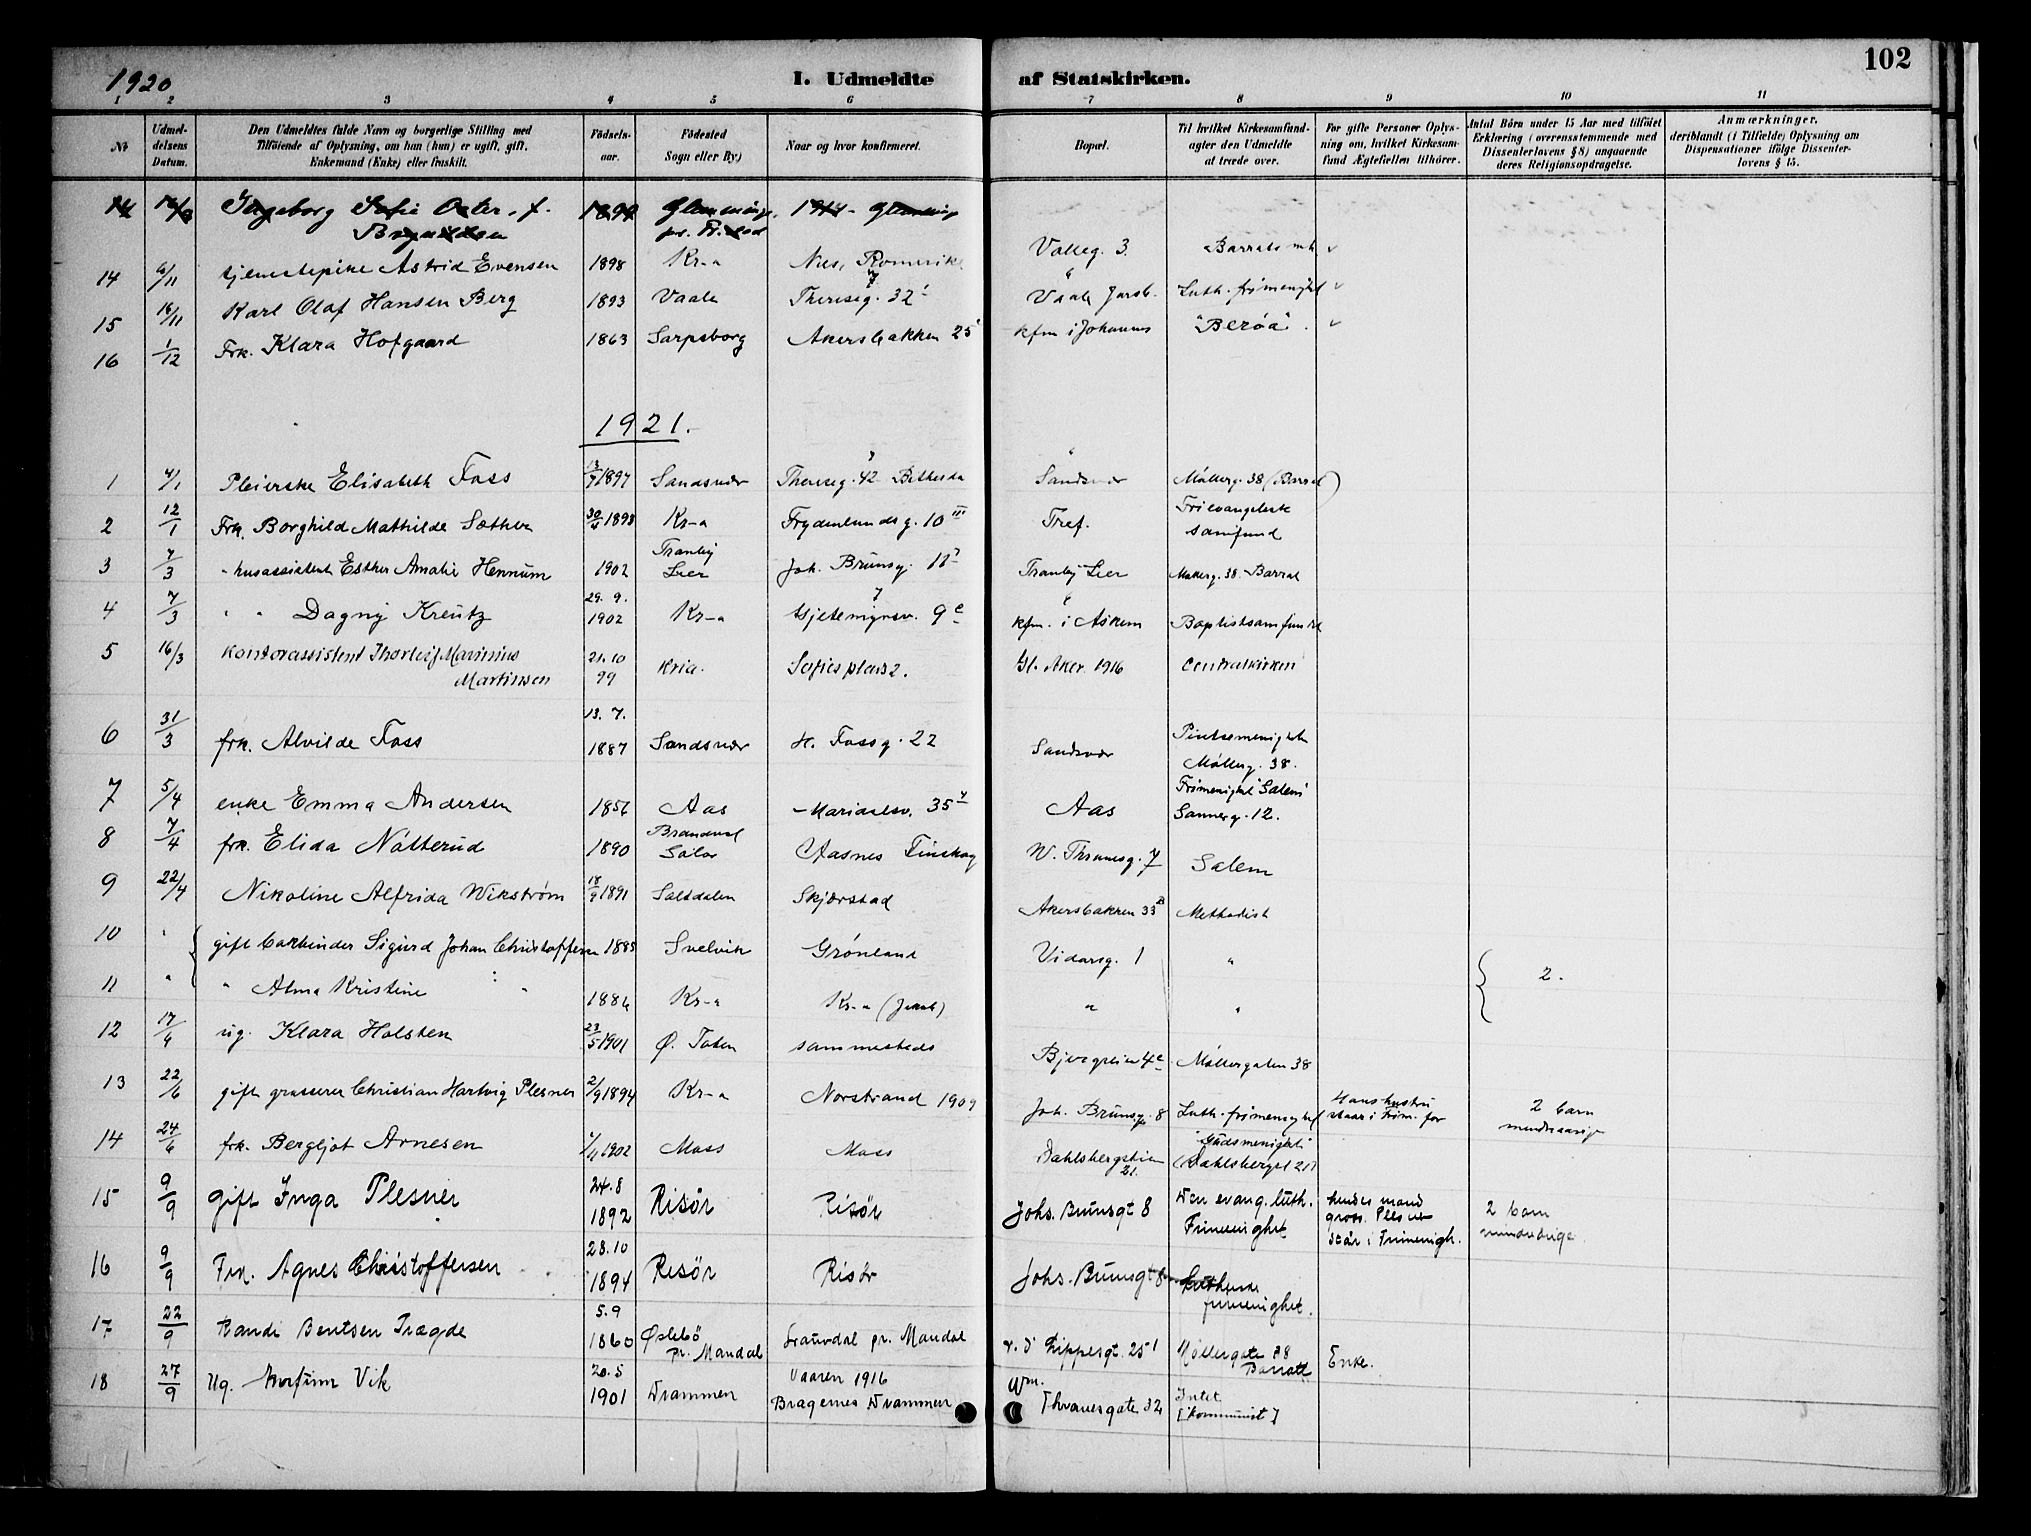 1920
I. Udmeldte af Statskirken.
102
1 2 3 4 5 6 7 8 9 10 11
No
Udmel-
delsens
Datum.
Den Udmeldtes fulde Navn og borgerlige Stilling med
Tilføiende af Oplysning, om han (hun) er ugift, gift,
Enkemand (Enke) eller fraskilt.
Fødsels-
aar.
Fødested
Sogn eller By)
Naar og hvor konfirmeret.
Bopæl.
Til hvilket Kirkesamfund-
agter den Udmeldte
at træde over.
For gifte Personer Oplys-
ning om, hvilket Kirkesam-
fund Ægtefællen tilhører.
Antal Börn under 15 Aar med tilföiet
Erklæring (overensstemmende med
Dissenterlovens § 8) angaaende
deres Religionsopdragelse.
Anmærkninger,
deriblandt (i Tilfælde) Oplysning om
Dispensationer ifølge Dissenter-
lovens § 15.
14 Ingeborg Sofie Oster, f. 1899 Glemminge, 1914 - Glemminge
14 6/11 tjenestepike Astrid Evensen 1898 Kr-a Nes, Romerike Valleg. 3. Barrats mh
15 16/11 Karl Olaf Hansen Berg 1893 Vaale Thereseg. 32 Vaale Jarsb. Luth. frimenighet
16 1/12 Frk. Klara Hofgaard 1863 Sarpsborg Akersbakken 25 kfm i Johannes "Berøa".
1921.
1 4/1 Pleierske Elisabeth Foss 13/7 1897 Sandsvær Thereseg. 42 Bethesda Sandsvær Møllerg. 38 (Barrat)
2 12/1 Frk. Borghild Mathilde Sæther 30/4 1898 Kr-a Frydenlundsg. 10 III Tref. Frievangelisk
samfund
3 7/3 husassistent Esther Amalie Hennum 1902 Tranby
Lier Joh. Brunsg. 11 Tranby Lier Møllerg. 38 Barrat
4 7/3 " " Dagny Kreutz 29. 9.
1902 Kr-a Gjetemyrsv. 9 c kfm. i Askern Baptistsamfundet
5 16/3 Kontorassistent Thorleif Marinius
Martinsen 21.10
99 Kria. Sofies plass 2. Gl. Aker 1916 Centralkirken
6 31/3 frk. Alvilde Foss 13. 7.
1887 Sandsvær H. Fossg. 22 Sandsvær Pintsemenigheten
Møllerg. 38.
7 5/4 enke Emma Andersen 1856 Aas Maridalsv. 35 Aas Frimenighet Salem
Sannerg. 12.
8 7/4 frk. Elida Nøtterud 1890 Brandval
Solør Aasnes Finskog W. Thranesg. 7 Salem
9 22/4 Nikoline Alfrida Wikstrøm 18/9 1891 Saltdalen Skjerstad Akersbakken 33 B Methodist
10 " gift bokbinder Sigurd Johan Christoffersen 1885 Svelvik Grønland Vidarsg. 1 " 2.
11 " " Alma Kristine " 1886 Kr-a Kr-a (Jakob) " "
12 17/6 ug. Klara Holsten 23/5 1901 Ø. Toten sammesteds Bjergsteien 4 c Møllergaten 38
13 22/6 gift grosserer Christian Hartvig Plesner 2/9 1894 Kr-a Norstrand 1909 Joh. Brunsg. 8 Luth. frimenighet Hans hustru
staar i Frim. for 2 barn
mindreaarige
14 24/6 frk. Bergljot Arnesen 1/11 1902 Moss Moss Dahlsbergstien
21. "Gudsmenighet"
(Dahlsberget 21)
15 9/9 gift Inga Plesner 24.8
1892 Risør Risør Johs. Brunsgt 8 Den evang. luth.
Frimenighet hendes mand
gross. Plesner
står i Frimenigh. 2 barn
mindreårige
16 9/9 Frk. Agnes Christoffersen 28.10
1894 Risør Risør Johs. Brunsgt 8 Lutherske
frimenighet.
17 22/9 Randi Bentsen Trægde 5.9
1860 Øslebø
pr. Mandal Lauvdal pr. Mandal v. d Lippesgt. 25 Møllergate 38
Barratt Enke.
18 27/9 Ug. Arnfinn Vik 20.5
1901 Drammen Vaaren 1916
Bragernes Drammen Wm.
Thranesgate 32 Intet
["kommunist"]